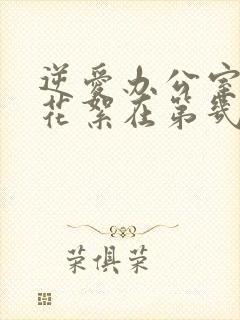 逆爱办公室
花絮在第几
荣俱荣